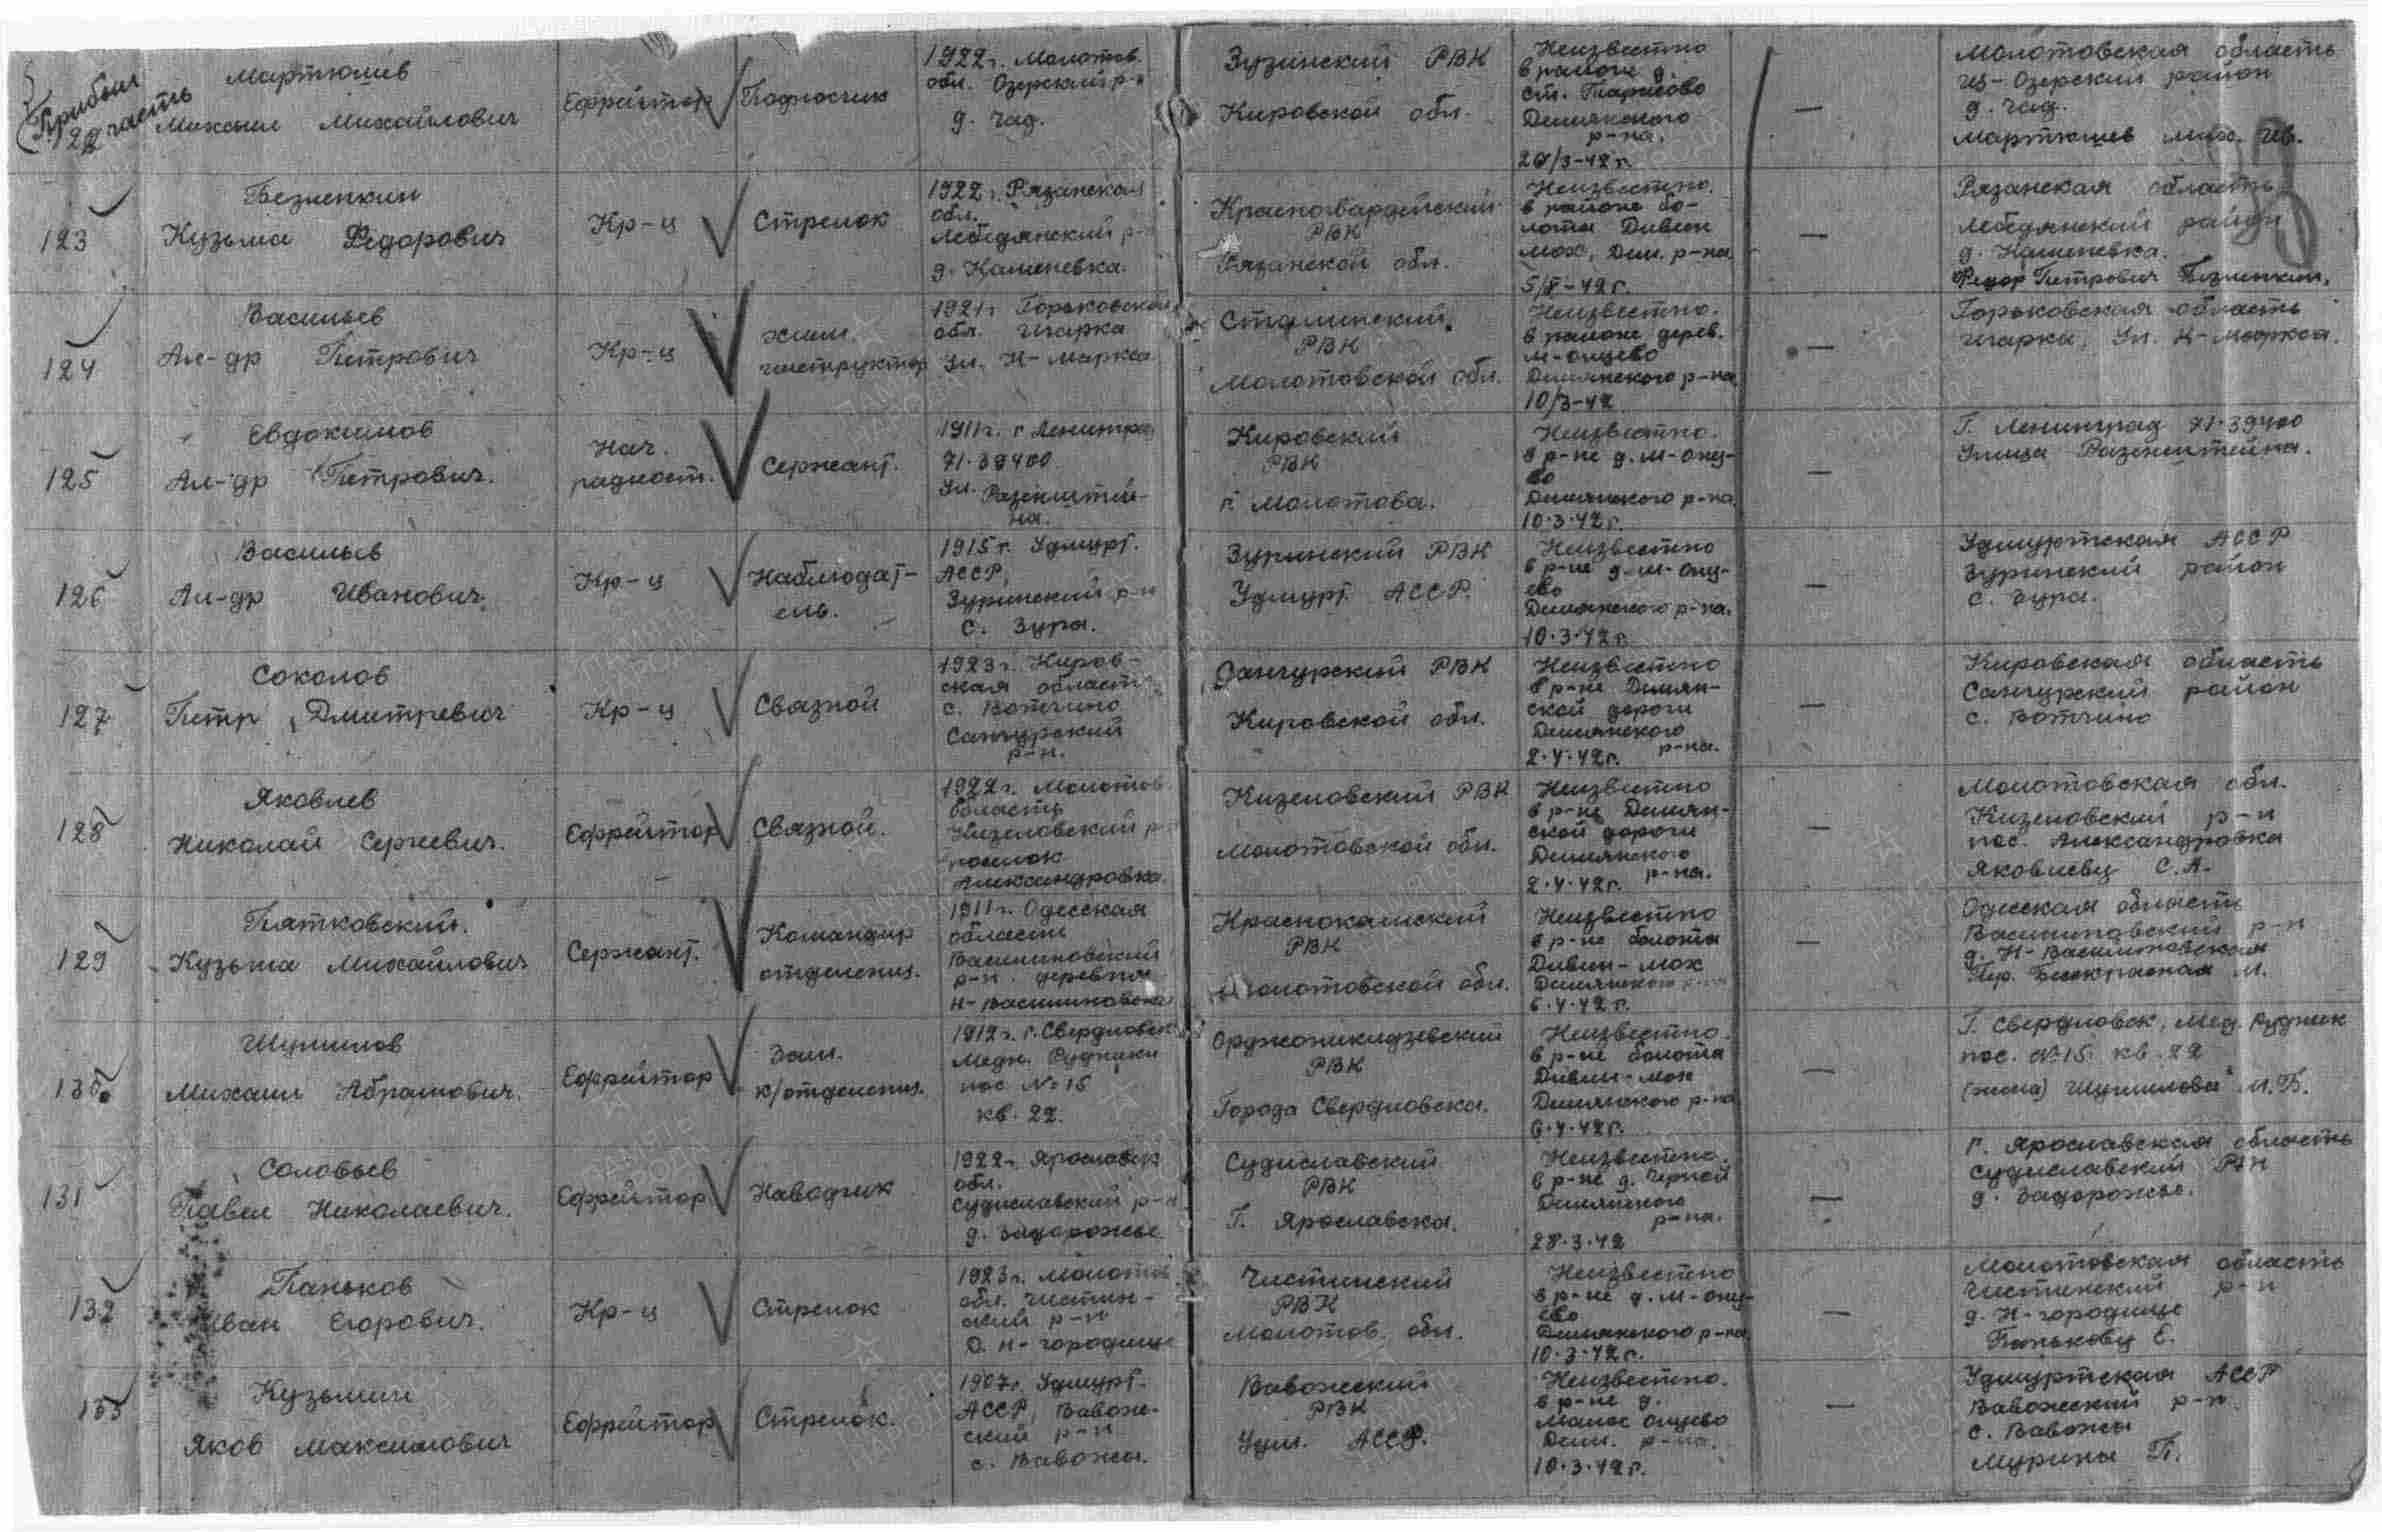 Прибыл
в часть
122
Мартюшев
Михаил Михайлович
Ефрейтор
Подносчик
1922г. Молотов.
обл. Озерский р-н
д. Чад.
Зузинский РВК
Кировской обл.
Неизвестно
в районе д.
ст. Тарасово
Демянского
р-на.
20/3-42г.
—
Молотовская область
Из-Озерский район
д. Чад.
Мартюшев Мих. Ив.
123
Безменкин
Кузьма Федорович
Кр-ц
Стрелок
1922г. Рязанская
обл.
Лебедянский р-н
д. Каменевка.
Красногвардейский
РВК
Рязанской обл.
Неизвестно.
в районе бо-
лота Дивен
мох, Дем. р-на
5/ -42г.
—
Рязанская область
Лебедянский район
д. Каменевка.
Федор Петрович Безменкин.
124
Васильев
Ал-др Петрович
Кр-ц
Хим.
инструктор
1921г Горьковская
обл. Игарка
Ул. К-Маркса
Сталинский
РВК
Молотовской обл.
Неизвестно.
в районе дерев.
М-опуево
Демянского р-на.
10/3-42
—
Горьковская область
Игарка, Ул. К-Маркса.
125
Евдокимов
Ал-др Петрович.
Нач.
радиост.
Сержант.
1911г. г Ленингра
71-39400
Ул. Разенштей-
на.
Кировский
РВК
г. Молотова.
Неизвестно.
в р-не д. М-опу-
ево
Демянского р-на.
10.3.42г.
—
Г. Ленинград 71-39400
Улица Разенштейна.
126
Васильев
Ал-др Иванович.
Кр-ц
Наблюдат-
ель.
1915г. Удмурт.
АССР,
Зуринский р-н
с. Зура.
Зуринский РВК
Удмурт. АССР.
Неизвестно
в р-не д-М-опу-
ево
Демянского р-на.
10.3.42г.
—
Удмуртская АССР
Зуринский район
с. Зура.
127
Соколов
Петр Дмитревич
Кр-ц
Связной
1923г. Киров-
ская область
с. Вотчино
Санчурский
р-н.
Санчурский РВК
Кировской обл.
Неизвестно
в р-не Демян-
ской дороги
Демянского
р-на.
2.4.42г.
—
Кировская область
Санчурский район
с. Вотчино
128
Яковлев
Николай Сергеевич.
Ефрейтор
Связной.
1922г. Молотов
область
Кизеловский р-н
поселок
Александровка.
Кизеловский РВК
Молотовской обл.
Неизвестно
в р-не Демян-
ской дороги
Демянского
р-на.
2.4.42г.
—
Молотовская обл.
Кизеловский р-н
пос. Александровка
Яковлеву С.А.
129
Пятковский.
Кузьма Михайлович
Сержант.
Командир
отделения.
1911г. Одесская
области
Василиновский
р-н. деревня
Н-Василиновская
Краснокамский
РВК
Молотовской обл.
Неизвестно
в р-не болота
Дивен-мох
Демянского р-на
6.4.42г.
—
Одесская область
Василиновский р-н
д. Н-Василиновская
Пер. М.
130
Шумилов
Михаил Абрамович.
Ефрейтор
Зам.
к/отделения.
1912г. г. Свердловск
Медн. Рудники
пос № 15
кв. 22.
Орджоникидзевский
РВК
Города Свердловска.
Неизвестно.
в р-не болота
Дивен-мох
Демянского р-на
6.4.42г.
—
Г. Свердловск, Мед. Рудник
пос. №15. кв. 22
(жена) Шумилова М.Б.
131
Соловьев
Павел Николаевич.
Ефрейтор
Наводчик
1922г. Ярославск
обл.
Судиславский р-н
д. Задорожье
Судиславский
РВК
Г. Ярославска.
Неизвестно.
в р-не д. Черной
Демянского
р-на.
28.3.42
—
г. Ярославская область
Судиславский РАН
д. Задорожье.
132
Паньков
Иван Егорович.
Кр-ц
Стрелок
1923г. Молотов.
обл. Частин-
ский р-н
д. Н-городище
Частинский
РВК
Молотов. обл.
Неизвестно
в р-не д. М-опу-
ево
Демянского р-на.
10.3.42г.
—
Молотовская область
Частинский р-н
д. Н-городище
Панькову Е.
133
Кузьмин
Яков Максимович
Ефрейтор
Стрелок.
1907г. Удмурт.
АССР, Вавож-
ский р-н
с. Вавожи.
Вавожский
РВК
Удм. АССР.
Неизвестно.
в р-не д.
Малое Опуево
Дем. р-на.
10.3.42г.
—
Удмуртская АССР
Вавожский р-н
с. Вавожи
Мурины П.